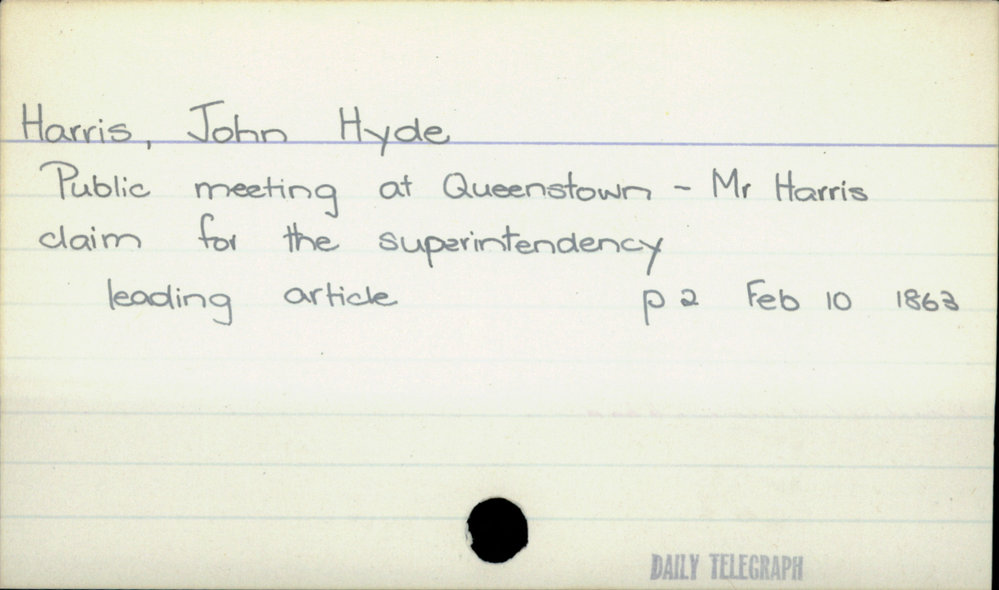 Harris, John Hyde
Public meeting at Queenstown - Mr Harris
claim for the superintendency
leading article p 2 Feb 10 1863
DAILY TELEGRAPH